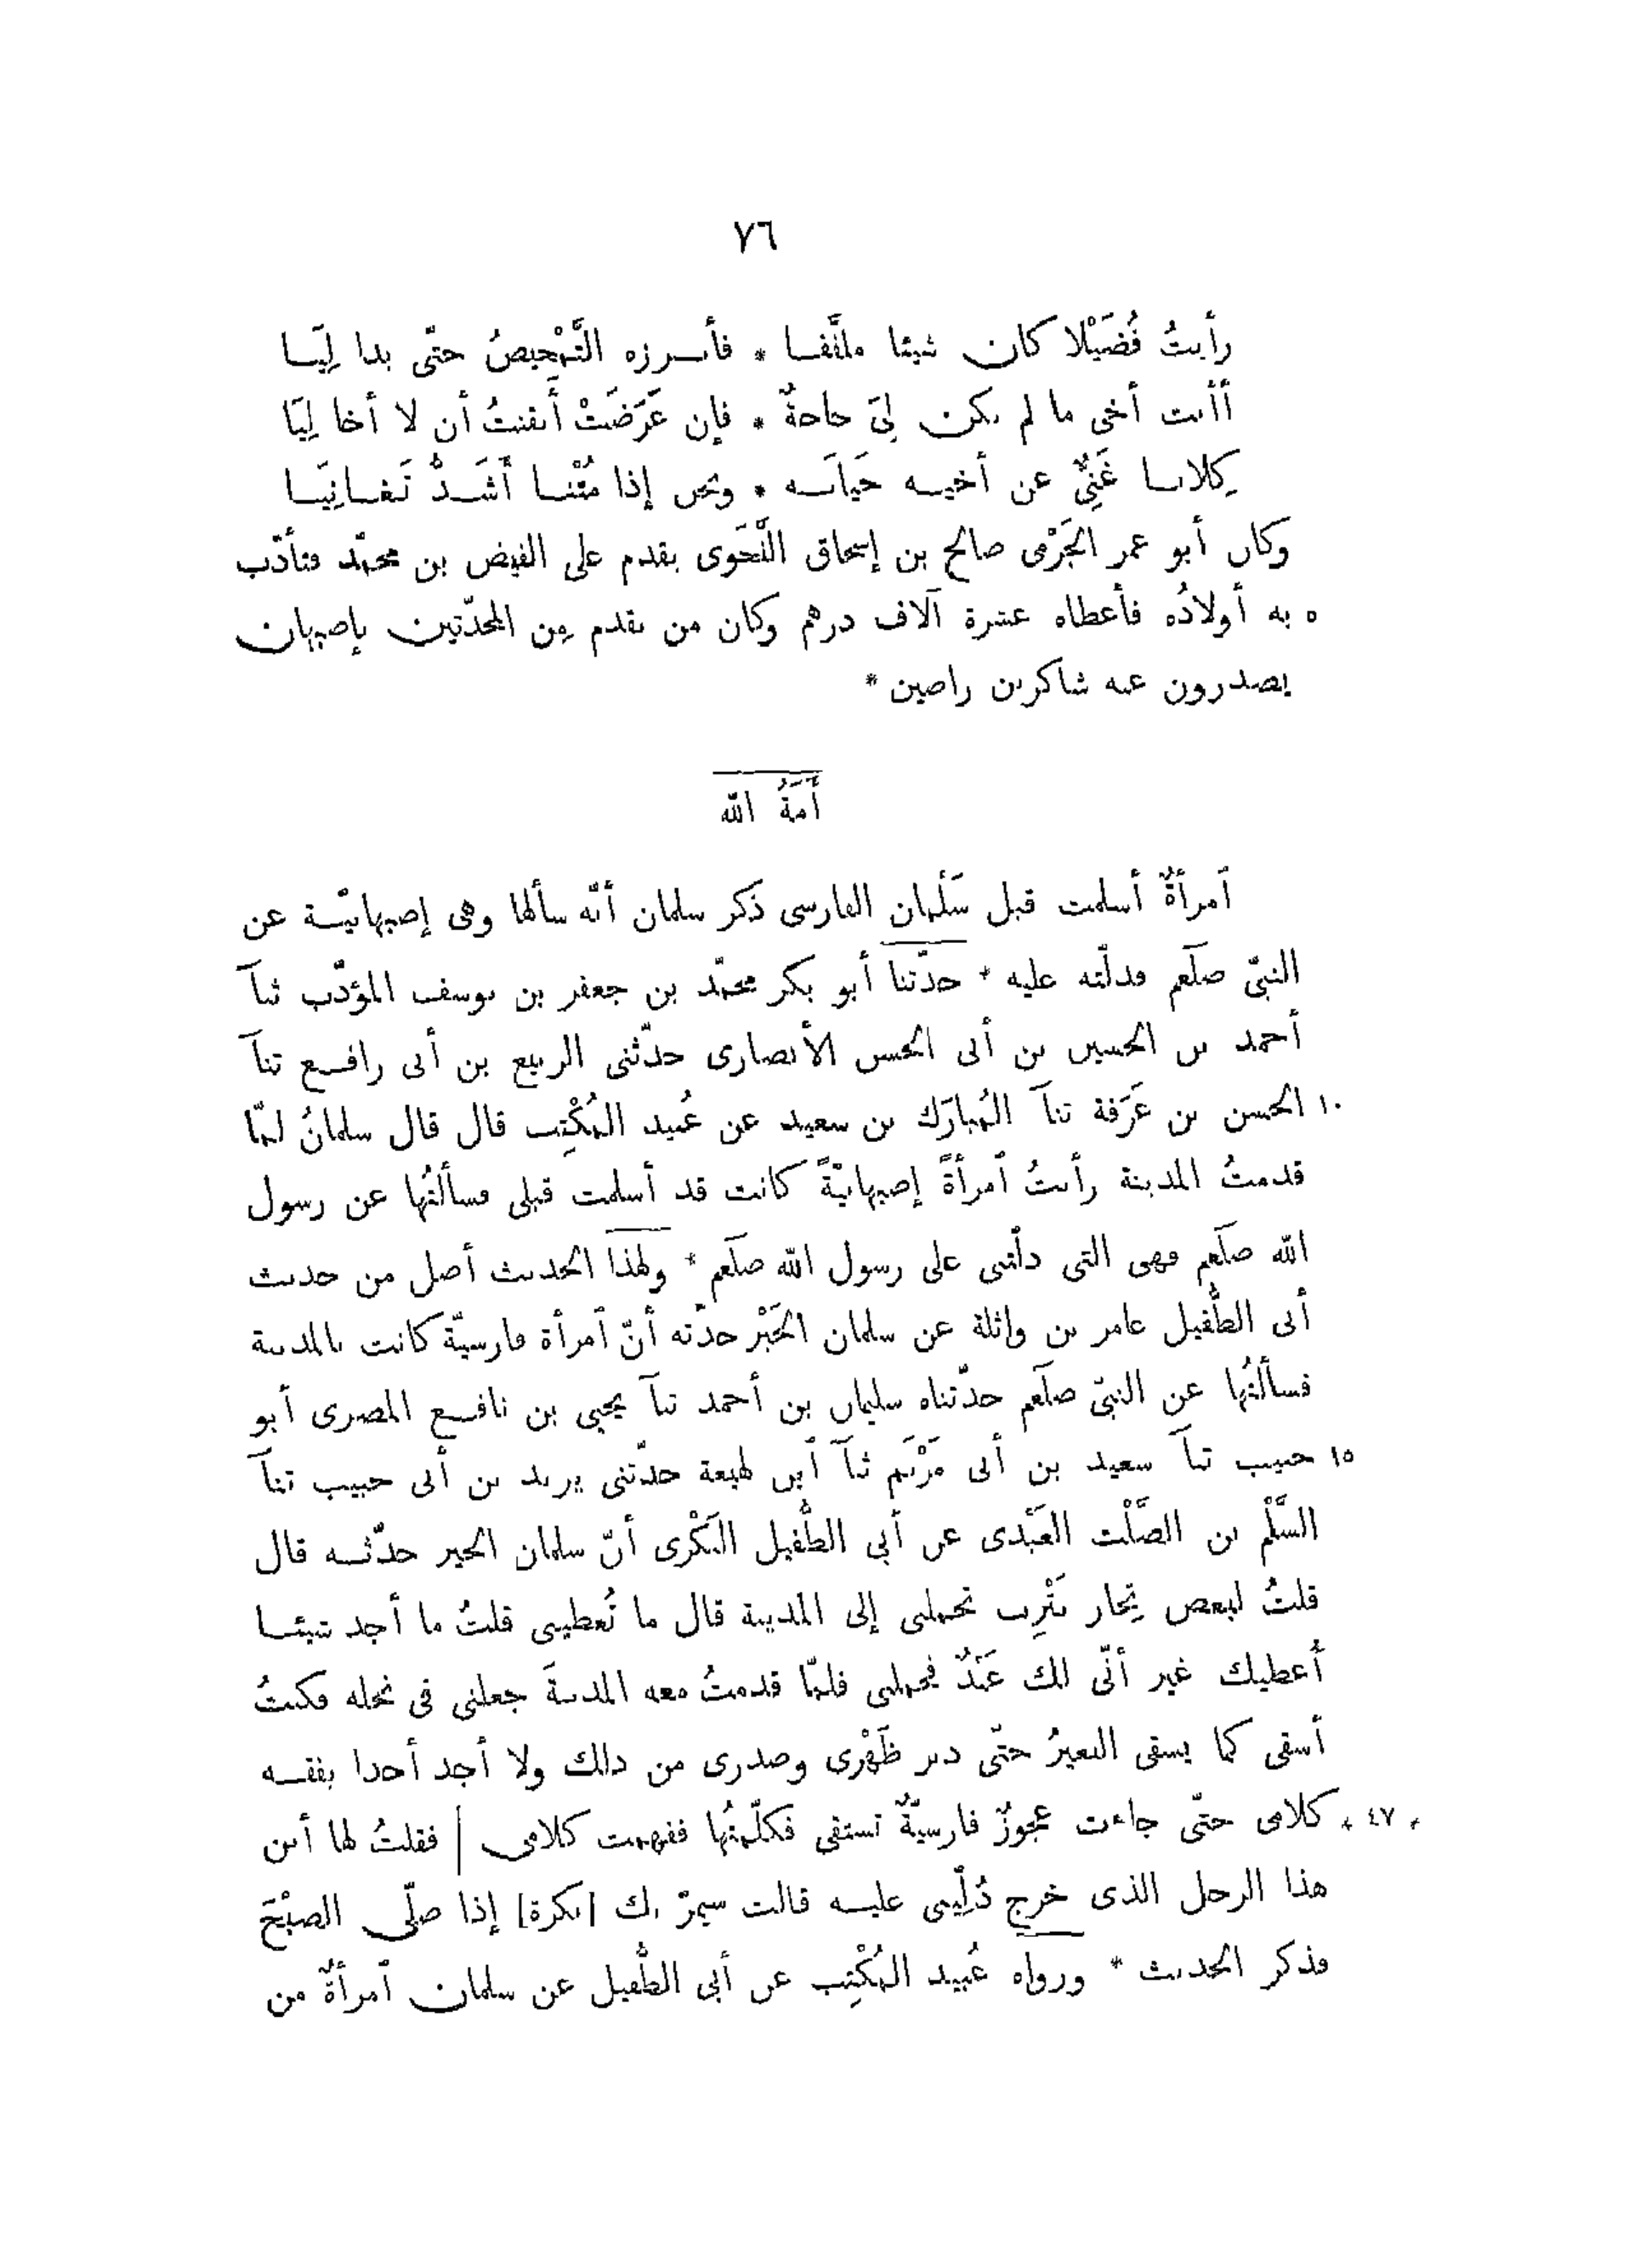 ٧٦
رأيتُ فُضَيْلا كان شيئا ملفَّفا * فأبرزه التَّمْحِيصُ حتّى بدا لِيَا
أأنت أخى ما لم يكن لِىَ حاجةٌ * فإن عَرَضَتْ أَيقنتُ أن لا أخا لِيَا
كِلانا غَنِىٌّ عن أخيه حَيَاتَه * ونحن إذا مُتْنا أَشَدُّ تَغانِيَا
وكان أبو عمر الجَرْمى صالح بن إسحاق النَّحْوى يقدم على الفيض بن محمّد فتأدّب
٥ به أولادُه فأعطاه عشرة آلاف درهم وكان من يقدم مِن المحدّثين بإصبهان
يصدرون عنه شاكرين راضين *
أَمَةُ الله
ٱمرأةٌ أسلمت قبل سَلْمان الفارسى ذكر سلمان أنّه سألها وهى إصبهانيّة عن
النبىّ صلعم فدلّته عليه * حدّثنا أبو بكر محمّد بن جعفر بن يوسف المؤدّب ثنآ
أحمد بن الحسين بن أبى الحسن الأنصارى حدّثنى الربيع بن أبى رافع ثنآ
١٠ الحسن بن عَرَفة ثنآ المُبارَك بن سعيد عن عُبيد المُكْتِب قال قال سلمانُ لمّا
قدمتُ المدينة رأيتُ ٱمرأةً إصبهانيّةً كانت قد أسلمت قبلى فسألتُها عن رسول
الله صلعم فهى التى دلّتنى على رسول الله صلعم * ولهذا الحديث أصل من حديث
أبى الطُّفيل عامر بن واثلة عن سلمان الخَيْر حدّثه أنّ ٱمرأة فارسيّة كانت بالمدينة
فسألتُها عن النبىّ صلعم حدّثناه سليمان بن أحمد ثنآ يحيى بن نافع المصرى أبو
١٥ حبيب ثنآ سعيد بن أبى مَرْيَم ثنآ ٱبن لهيعة حدّثنى يزيد بن أبى حبيب ثنآ
السَّلْم بن الصَّلْت العَبْدى عن أبى الطُّفيل البَكْرى أنّ سلمان الخير حدّثه قال
قلتُ لبعض تِجار يَثْرِب تحملنى إلى المدينة قال ما تُعطينى قلتُ ما أجد شيئا
أُعطيك غير أنّى لك عَبْدٌ فحملنى فلمّا قدمتُ معه المدينةَ جعلنى فى نخله فكنتُ
أسقى كما يسقى البعيرُ حتّى دبر ظَهْرى وصدرى من ذلك ولا أجد أحدا يفقه
* ٤٧ * كلامى حتّى جاءت عجوزٌ فارسيّةٌ تستقى فكلّمتُها ففهمت كلامى | فقلتُ لها أين
هذا الرجل الذى خرج دُلِّينى عليه قالت سيمرّ بك [بكرة] إذا صلّى الصبْحَ
فذكر الحديث * ورواه عُبيد المُكْتِب عن أبى الطُّفيل عن سلمان ٱمرأةٌ من